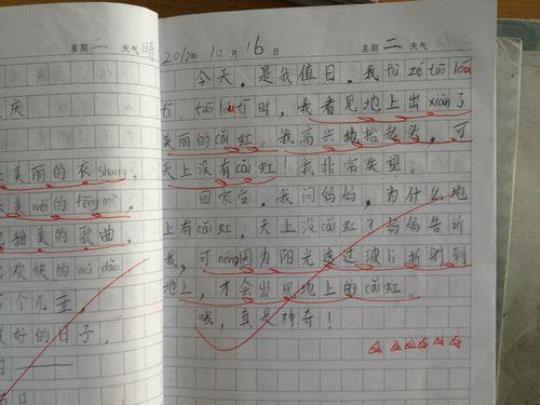 星期二 天气晴
庆
美丽的衣shang,
美mèi的fēng mì,
甜美的歌曲,
欢快的wǔ dǎo
个儿童,
美好的日子,
日——
2012年10月16日 星期二 天气
今天,是我值日,我fù zé tuō lóu
tī,tuō lóu tī时,我看见地上出xiàn了
美丽的cǎi虹。我高兴地抬起头,可
天上没有cǎi虹!我非常失望。
回家后,我问妈妈,为什么地
上有cǎi虹,天上没cǎi虹?妈妈告诉
我,可néng因为阳光透过玻li折射到
地上,才会出现地上的cǎi虹。
哦,真是神奇!